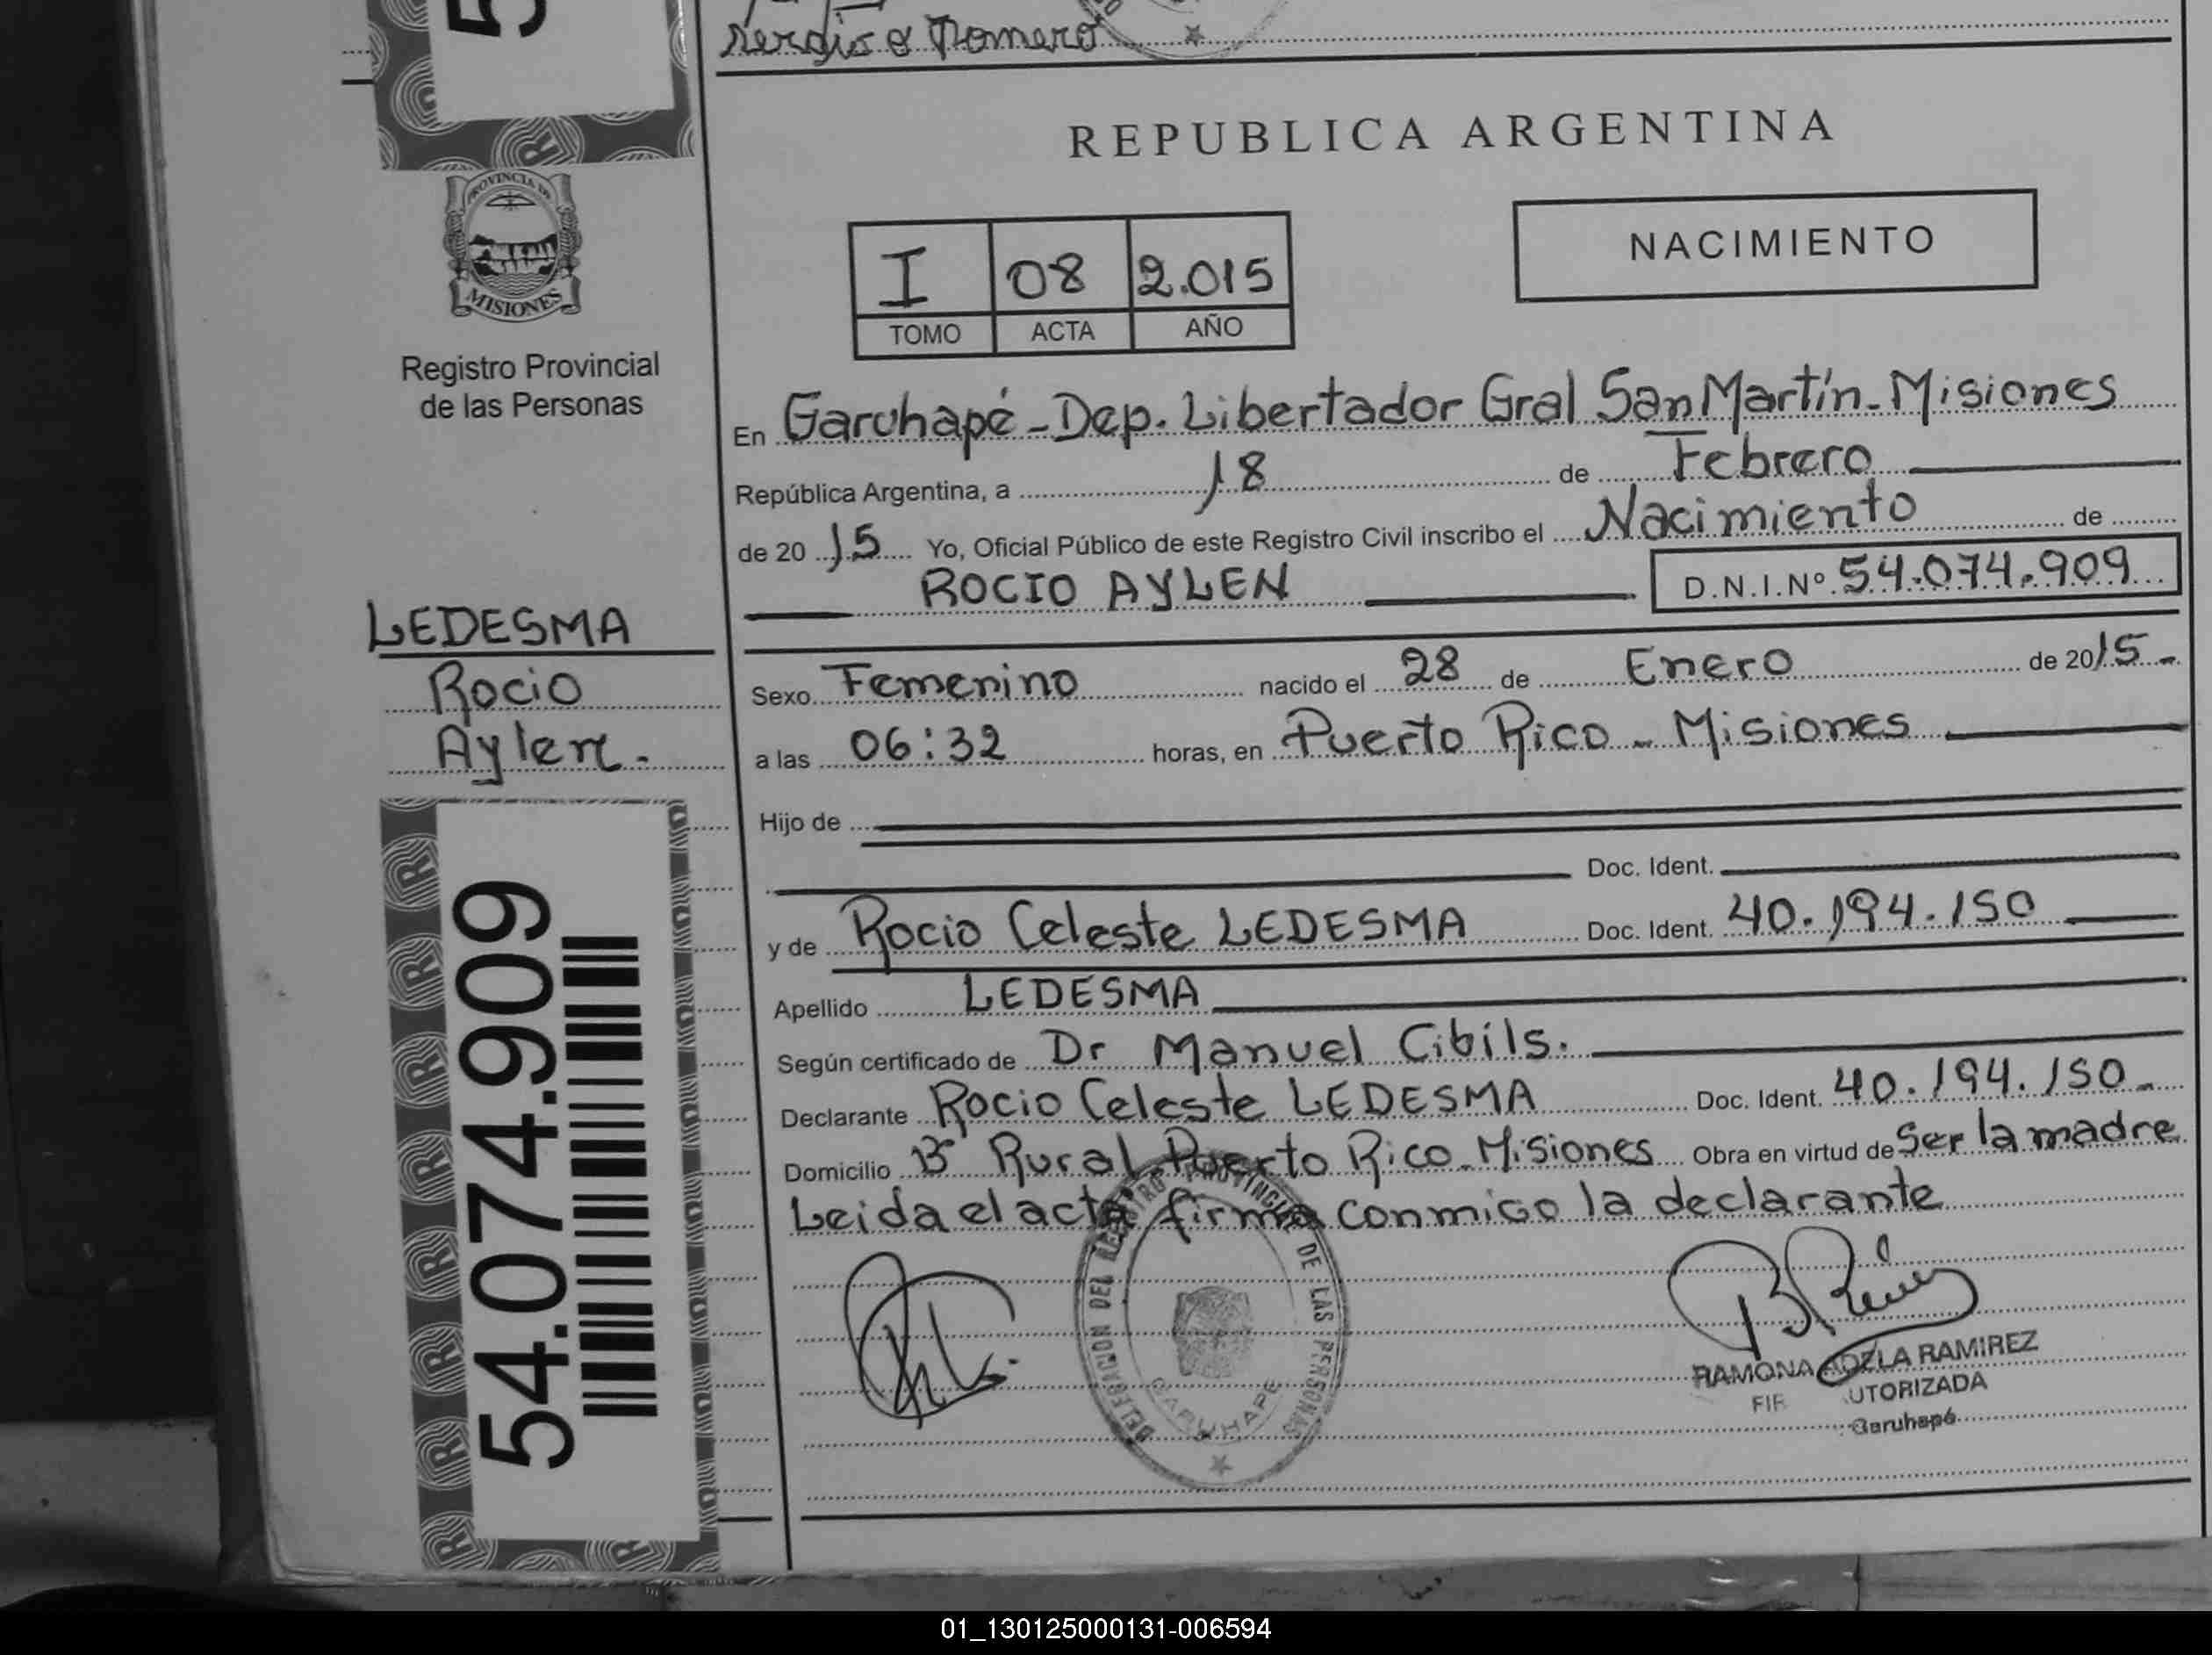 Sergio O Romero
REPUBLICA ARGENTINA
PROVINCIA DE
MISIONES
Registro Provincial
de las Personas
I 08 2.015
TOMO ACTA AÑO
NACIMIENTO
En Garuhapé - Dep. Libertador Gral San Martín - Misiones
República Argentina, a 18 de Febrero
de 20 15 Yo, Oficial Público de este Registro Civil inscribo el Nacimiento de
ROCIO AYLEN D.N.I.Nº 54.074.909
LEDESMA
Rocio
Aylen.
Sexo Femenino nacido el 28 de Enero de 2015-
a las 06:32 horas, en Puerto Rico - Misiones
Hijo de
Doc. Ident.
y de Rocio Celeste LEDESMA Doc. Ident. 40.194.150
Apellido LEDESMA
Según certificado de Dr Manuel Cibils.
Declarante Rocio Celeste LEDESMA Doc. Ident. 40.194.150-
Domicilio Bº Rural Puerto Rico - Misiones Obra en virtud de Ser la madre
Leida el acta firma conmigo la declarante
54.074.909
DELEGACION DEL REGISTRO PROVINCIAL DE LAS PERSONAS
GARUHAPE
RAMONA ADELA RAMIREZ
FIR UTORIZADA
Garuhapé
01_130125000131-006594